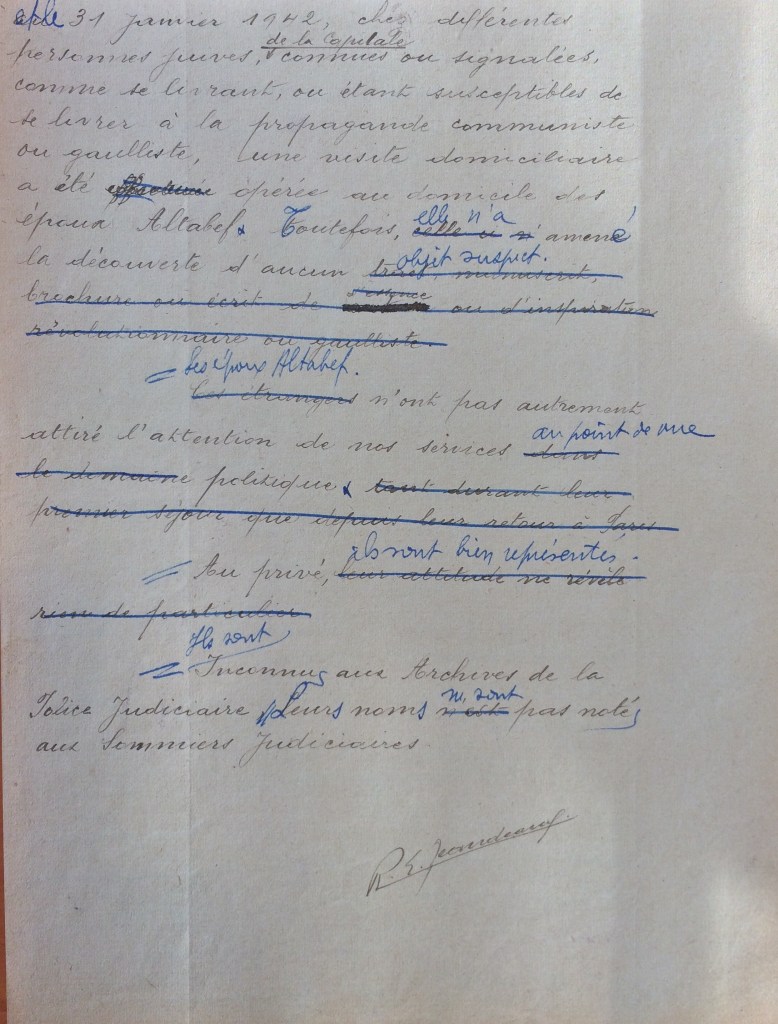 le 31 janvier 1942, chez différentes
de la Capitale
personnes juives, connues ou signalées,
comme se livrant, ou étant susceptibles de
se livrer à la propagande communiste
ou gaulliste, une visite domiciliaire
a été effectuée opérée au domicile des
elle n'a
époux Altabef. Toutefois, celle ci n' amené
objet suspect.
la découverte d'aucun manuscrit,
brochure ou écrit de ou d'inspiration
révolutionnaire ou gaulliste.
Les époux Altabef.
Ces étrangers n'ont pas autrement
au point de vue
attiré l'attention de nos services dans
le domaine politique tant durant leur
premier séjour que depuis leur retour à Paris
ils sont bien représentés.
Au privé, leur attitude ne révèle
rien de particulier
Ils sont
Inconnus aux Archives de la
ne sont
Police Judiciaire, Leurs noms n'est pas notés
aux Sommiers Judiciaires.